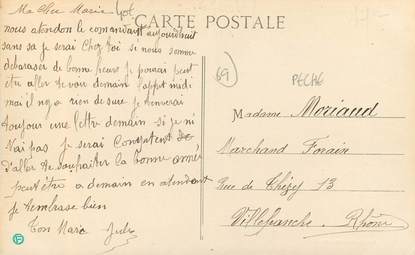 CARTE POSTALE
Ma Chere Marie
nous atendon le comandant aujourduit
sans sa je serai Chez toi si nous somme
débaraser de bonne heure je pourai peut
être aller te voir demain l'appret midi
mai il ny a rien de sure je t'enverai
toujour une lettre demain si je ni
vai pas je serai Comptent de
d'aller te souhaiter la bonne année
peut être a demain en atendant
je t'embrase bien
Ton Mari Jules
69
PECHE
Madame Moriaud
Marchand Forain
Rue de Thizy 13
Villefranche Rhône